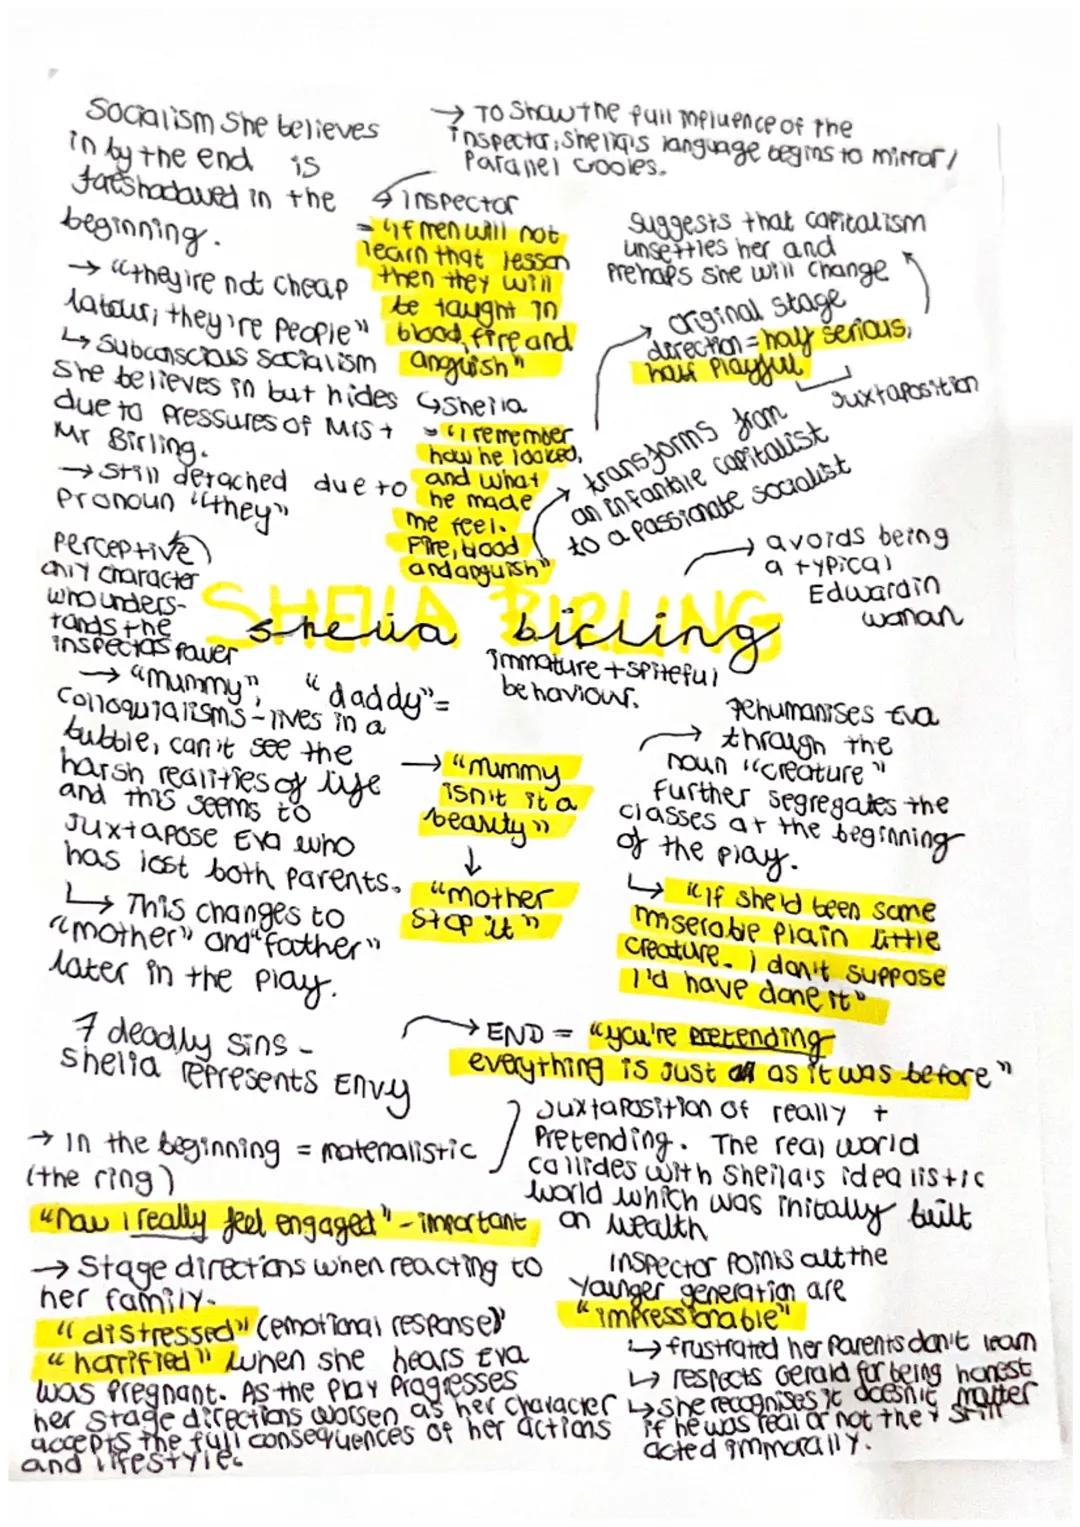 Socialism she believes
in by the end is
foreshadowed in the
beginning.
→ "they're not cheap
labour, they're people"
↳ Subconscious socialism
She believes in but hides
due to pressures of Mrs +
Mr Birling.
→ Still detached due to
pronoun "they"
→ TO Show the full influence of the
inspector, Shelia's language begins to mirror/
Parallel Gooles.
↙ Inspector
= "if men will not
learn that lesson
then they will
be taught in
blood, fire and
anguish"
↳ Sheila
→ "I remember
how he looked,
and what
he made
me feel.
Fire, blood
and anguish"
Suggests that capitalism
unsettles her and
prehaps she will change
→ original stage
direction = half serious,
half playful
Juxtaposition
→ transforms from
an infantile capitalist
to a passionate socialist
→ avoids being
a typical
Edwardin
woman
perceptive
only character
who unders-
tands the
inspectors power
SHEILA BIRLING
sheila birling
immature + spiteful
behaviour.
→ "mummy", "daddy" =
colloquialisms - lives in a
bubble, can't see the
harsh realities of life
and this seems to
Juxtapose Eva who
has lost both parents.
↳ This changes to
"mother" and "father"
later in the play.
→ "mummy
isn't it a
beauty"
↓
"mother
stop it"
Dehumanises Eva
→ through the
noun "creature"
further segregates the
classes at the beginning
of the play.
↳ "if she'd been some
miserable plain little
creature. I don't suppose
I'd have done it"
7 deadly sins -
shelia represents Envy
→ END = "you're pretending
everything is just as it was before"
Juxtaposition of really +
Pretending. The real world
collides with Sheila's idealistic
world which was initally built
on wealth
→ in the beginning = materialistic
(the ring)
"now i really feel engaged" - important
→ Stage directions when reacting to
her family.
"distressed" (emotional response)
"horrified" when she hears Eva
was pregnant. As the play progresses
her stage directions worsen as her character
accepts the full consequences of her actions
and lifestyle.
Inspector points out the
younger generation are
"impressionable"
↳ frustrated her parents don't learn
↳ respects Gerald for being honest
↳ she recognises it doesn't matter
if he was real or not they still
acted immorally.